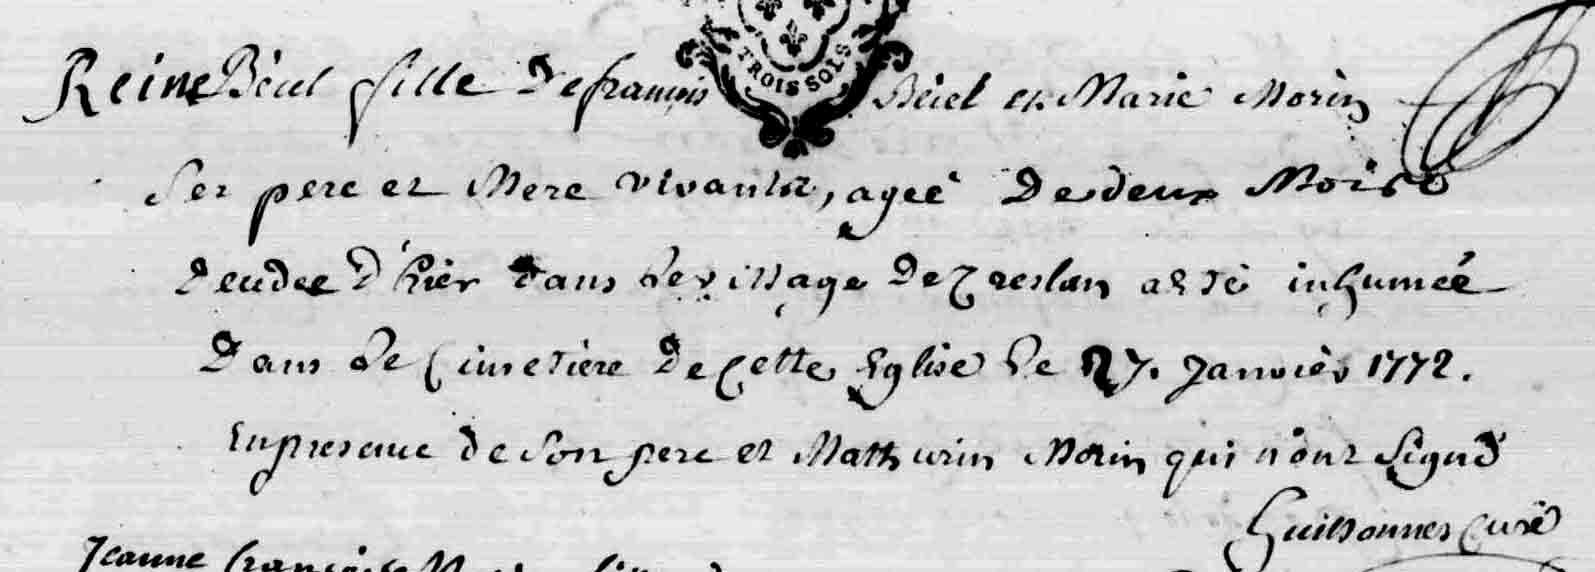 TROIS SOLS
Reine Béiel fille de françois Béiel et Marie Morin
ses pere et Mere vivants, ageé de deux Mois
decedee d'hier dans le village de Treslan a esté inhumée
Dans le Cimetière de cette Eglise le 27. Janvier 1772.
En presence de Son pere et Mathurin Morin qui n'ont Signé
curé
Jeanne françoise